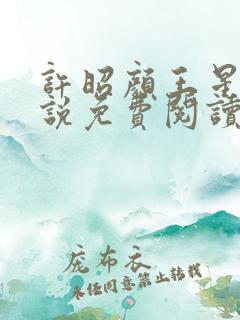 許昭顏王景
說免費閱讀
庞布衣
未经同意禁止转载